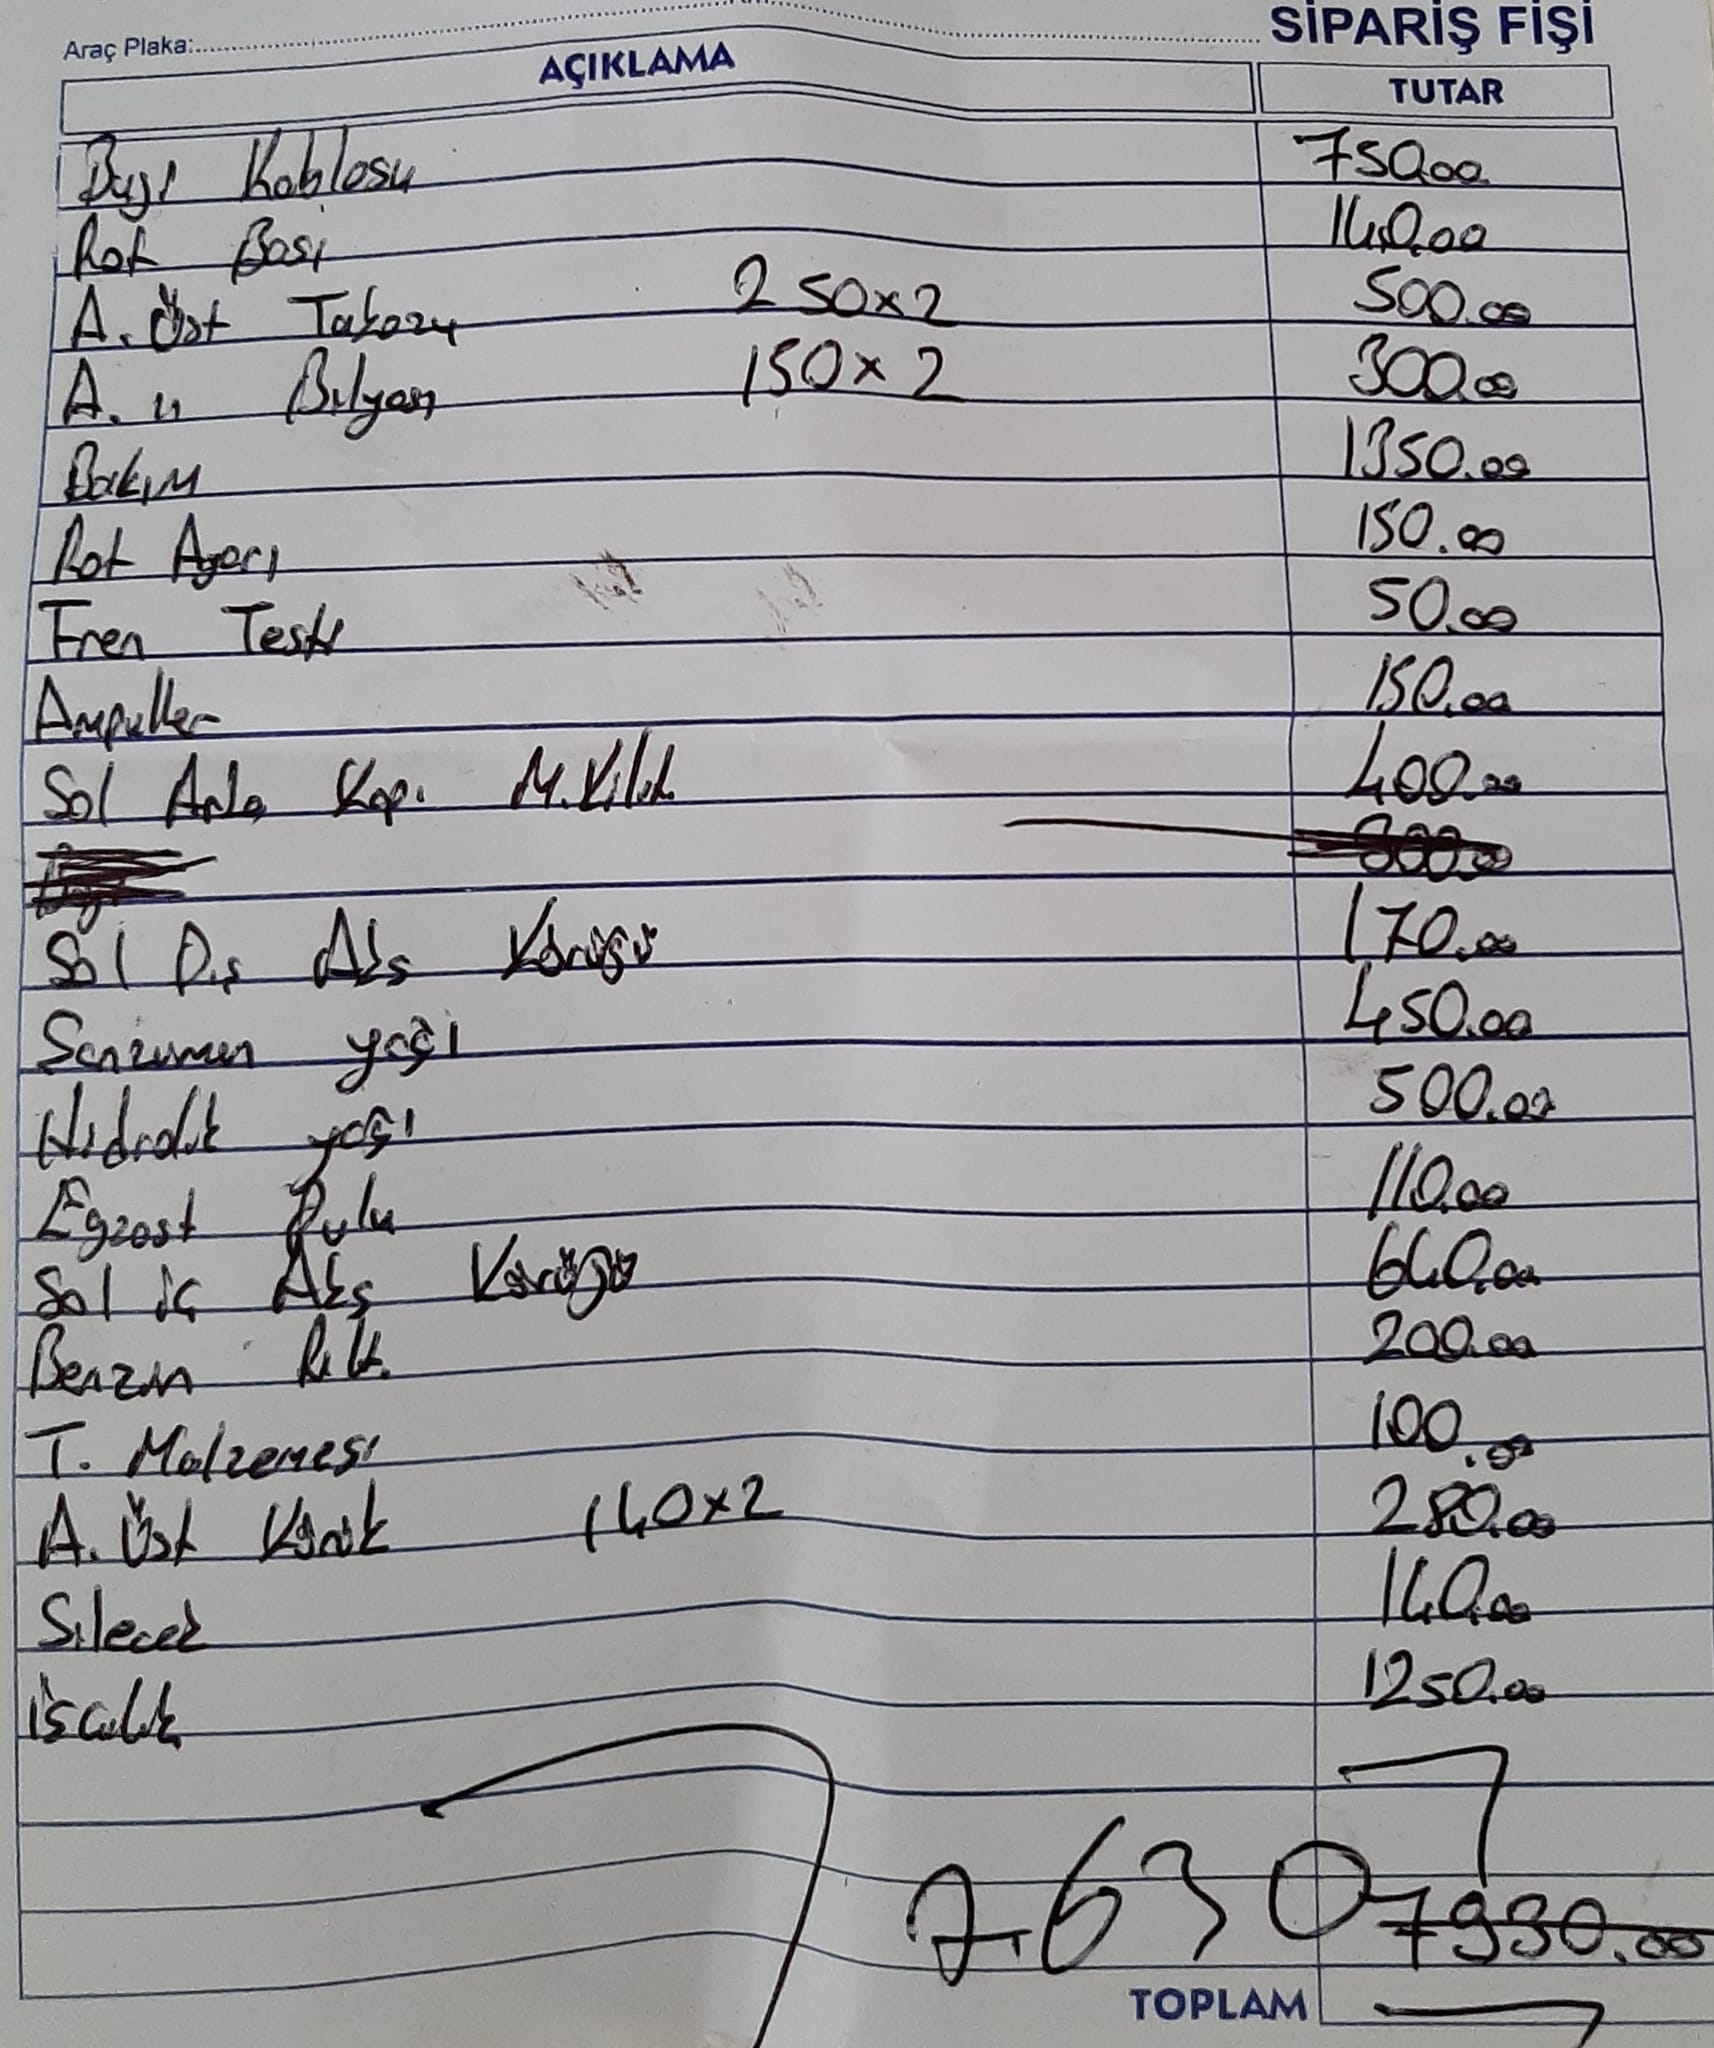 Araç Plaka:
SİPARİŞ FİŞİ
AÇIKLAMA TUTAR
Buji Kablosu 750.00
Rot Başı 140.00
A. Üst Takozu 250x2 500.00
A. ıı Bilyası 150x2 300.00
Bakım 1350.00
Rot Ayarı 150.00
Fren Testi 50.00
Ampuller 150.00
Sol Arka Kapı M.Kilit 400.00
300.00
Sol Dış Aks Körüğü 170.00
Sanzuman yağı 450.00
Hidrolik yağı 500.00
Egzost Pulu 110.00
Sol iç Aks Körüğü 640.00
Benzin Filt. 200.00
T. Malzemesi 100.00
A. Üst Körük 140x2 280.00
Silecek 140.00
işcilik 1250.00
7.630 7930.00
TOPLAM